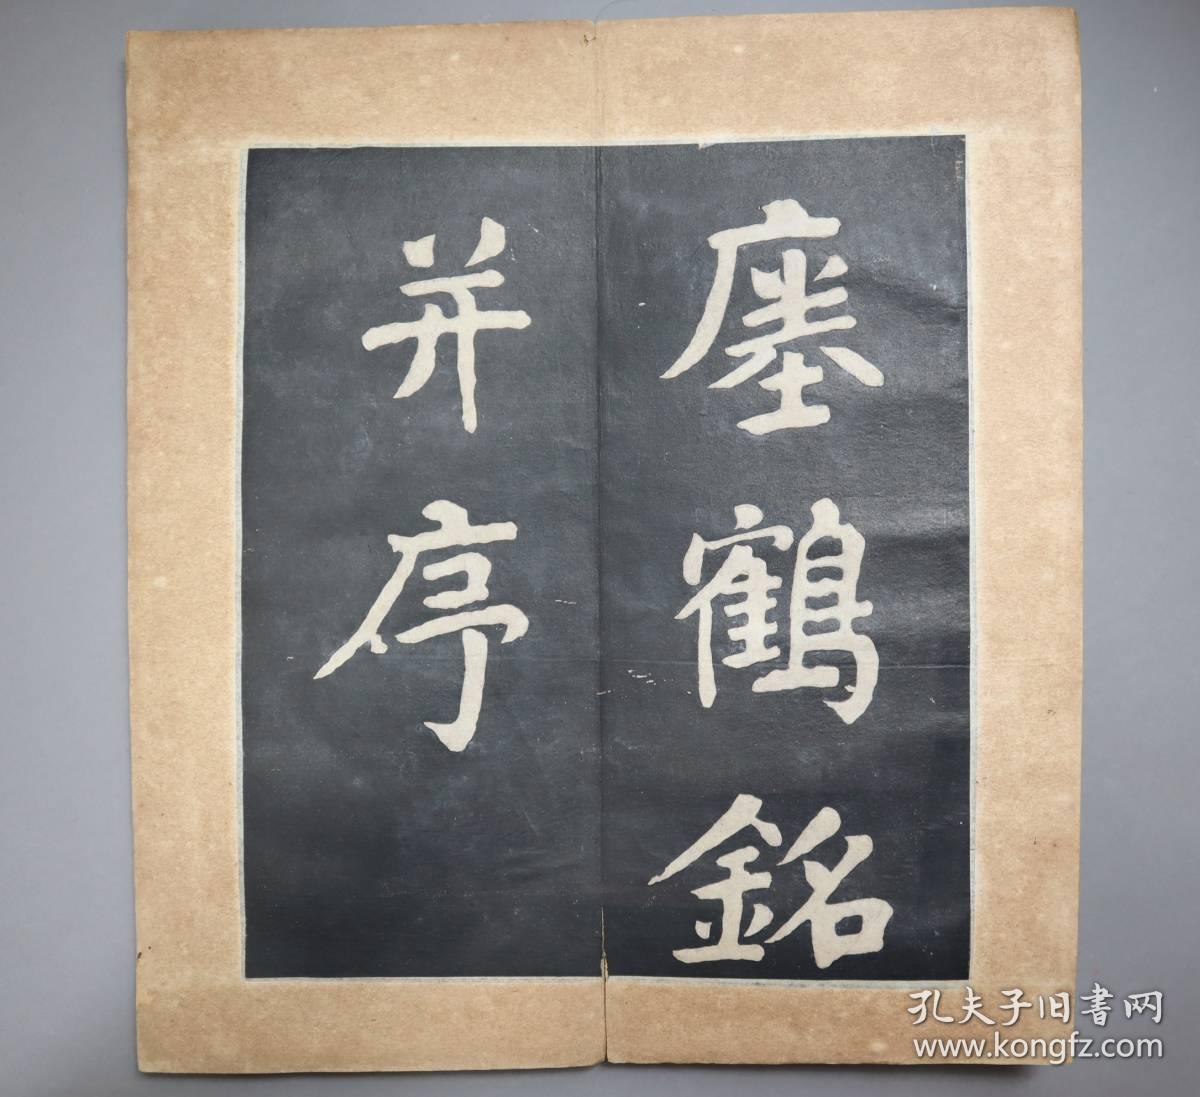 瘞鶴銘
并序
孔夫子旧書网
www.kongfz.com